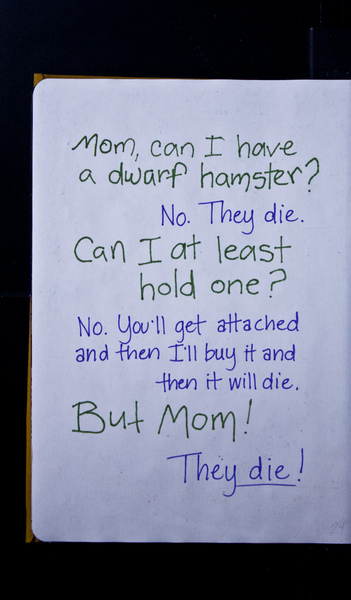 Mom, can I have
a dwarf hamster?
No. They die.
Can I at least
hold one?
No. You'll get attached
and then I'll buy it and
then it will die.
But Mom!
They die!